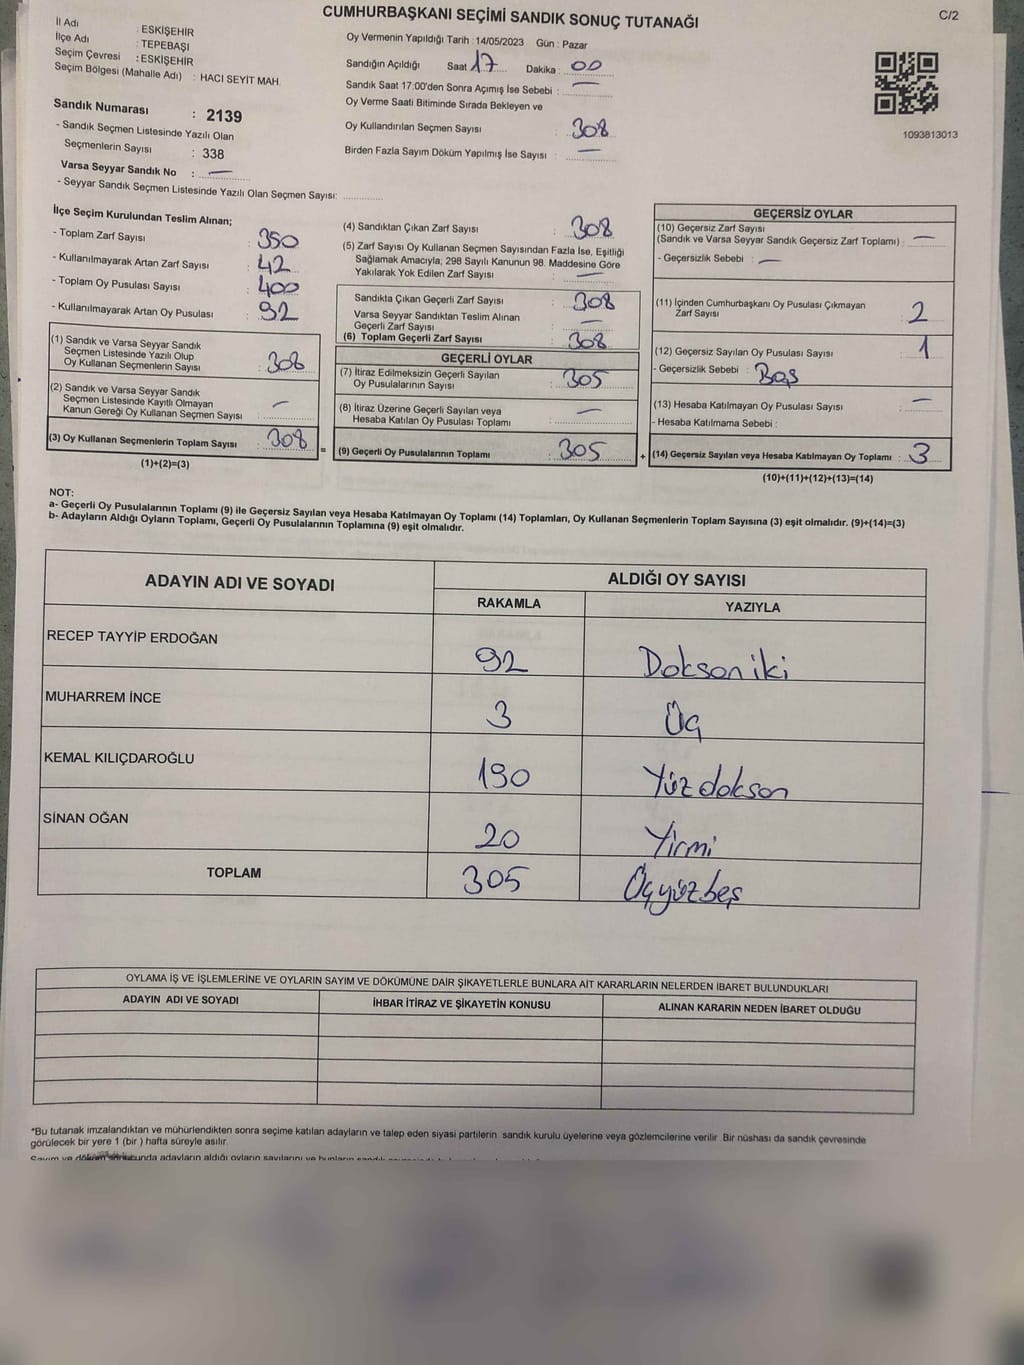 CUMHURBAŞKANI SEÇİMİ SANDIK SONUÇ TUTANAĞI
C/2
İl Adı : ESKİŞEHİR
İlçe Adı : TEPEBAŞI
Seçim Çevresi : ESKİŞEHİR
Seçim Bölgesi (Mahalle Adı) : HACI SEYİT MAH.
Sandık Numarası : 2139
- Sandık Seçmen Listesinde Yazılı Olan
Seçmenlerin Sayısı : 338
Varsa Seyyar Sandık No : —
- Seyyar Sandık Seçmen Listesinde Yazılı Olan Seçmen Sayısı:
Oy Vermenin Yapıldığı Tarih : 14/05/2023 Gün : Pazar
Sandığın Açıldığı Saat 17 Dakika : 00
Sandık Saat 17:00'den Sonra Açımış İse Sebebi : —
Oy Verme Saati Bitiminde Sırada Bekleyen ve
Oy Kullandırılan Seçmen Sayısı : 308
Birden Fazla Sayım Döküm Yapılmış İse Sayısı : —
1093813013
İlçe Seçim Kurulundan Teslim Alınan;
- Toplam Zarf Sayısı : 350
- Kullanılmayarak Artan Zarf Sayısı : 42
- Toplam Oy Pusulası Sayısı : 400
- Kullanılmayarak Artan Oy Pusulası : 92
(1) Sandık ve Varsa Seyyar Sandık
Seçmen Listesinde Yazılı Olup
Oy Kullanan Seçmenlerin Sayısı : 308
(2) Sandık ve Varsa Seyyar Sandık
Seçmen Listesinde Kayıtlı Olmayan
Kanun Gereği Oy Kullanan Seçmen Sayısı : —
(3) Oy Kullanan Seçmenlerin Toplam Sayısı : 308
(1)+(2)=(3)
(4) Sandıktan Çıkan Zarf Sayısı : 308
(5) Zarf Sayısı Oy Kullanan Seçmen Sayısından Fazla İse, Eşitliği
Sağlamak Amacıyla; 298 Sayılı Kanunun 98. Maddesine Göre
Yakılarak Yok Edilen Zarf Sayısı : —
Sandıkta Çıkan Geçerli Zarf Sayısı : 308
Varsa Seyyar Sandıktan Teslim Alınan
Geçerli Zarf Sayısı : —
(6) Toplam Geçerli Zarf Sayısı : 308
GEÇERLİ OYLAR
(7) İtiraz Edilmeksizin Geçerli Sayılan
Oy Pusulalarının Sayısı : 305
(8) İtiraz Üzerine Geçerli Sayılan veya
Hesaba Katılan Oy Pusulası Toplamı : —
= (9) Geçerli Oy Pusulalarının Toplamı : 305 +
GEÇERSİZ OYLAR
(10) Geçersiz Zarf Sayısı
(Sandık ve Varsa Seyyar Sandık Geçersiz Zarf Toplamı) : —
- Geçersizlik Sebebi : —
(11) İçinden Cumhurbaşkanı Oy Pusulası Çıkmayan
Zarf Sayısı : 2
(12) Geçersiz Sayılan Oy Pusulası Sayısı : 1
- Geçersizlik Sebebi : Boş
(13) Hesaba Katılmayan Oy Pusulası Sayısı : —
- Hesaba Katılmama Sebebi :
(14) Geçersiz Sayılan veya Hesaba Katılmayan Oy Toplamı : 3
(10)+(11)+(12)+(13)=(14)
NOT:
a- Geçerli Oy Pusulalarının Toplamı (9) ile Geçersiz Sayılan veya Hesaba Katılmayan Oy Toplamı (14) Toplamları, Oy Kullanan Seçmenlerin Toplam Sayısına (3) eşit olmalıdır. (9)+(14)=(3)
b- Adayların Aldığı Oyların Toplamı, Geçerli Oy Pusulalarının Toplamına (9) eşit olmalıdır.
ADAYIN ADI VE SOYADI ALDIĞI OY SAYISI
RAKAMLA YAZIYLA
RECEP TAYYİP ERDOĞAN 92 Doksan iki
MUHARREM İNCE 3 Üç
KEMAL KILIÇDAROĞLU 190 Yüz doksan
SİNAN OĞAN 20 Yirmi
TOPLAM 305 Üçyüzbeş
OYLAMA İŞ VE İŞLEMLERİNE VE OYLARIN SAYIM VE DÖKÜMÜNE DAİR ŞİKAYETLERLE BUNLARA AİT KARARLARIN NELERDEN İBARET BULUNDUKLARI
ADAYIN ADI VE SOYADI İHBAR İTİRAZ VE ŞİKAYETİN KONUSU ALINAN KARARIN NEDEN İBARET OLDUĞU
*Bu tutanak imzalandıktan ve mühürlendikten sonra seçime katılan adayların ve talep eden siyasi partilerin sandık kurulu üyelerine veya gözlemcilerine verilir. Bir nüshası da sandık çevresinde
görülecek bir yere 1 (bir ) hafta süreyle asılır.